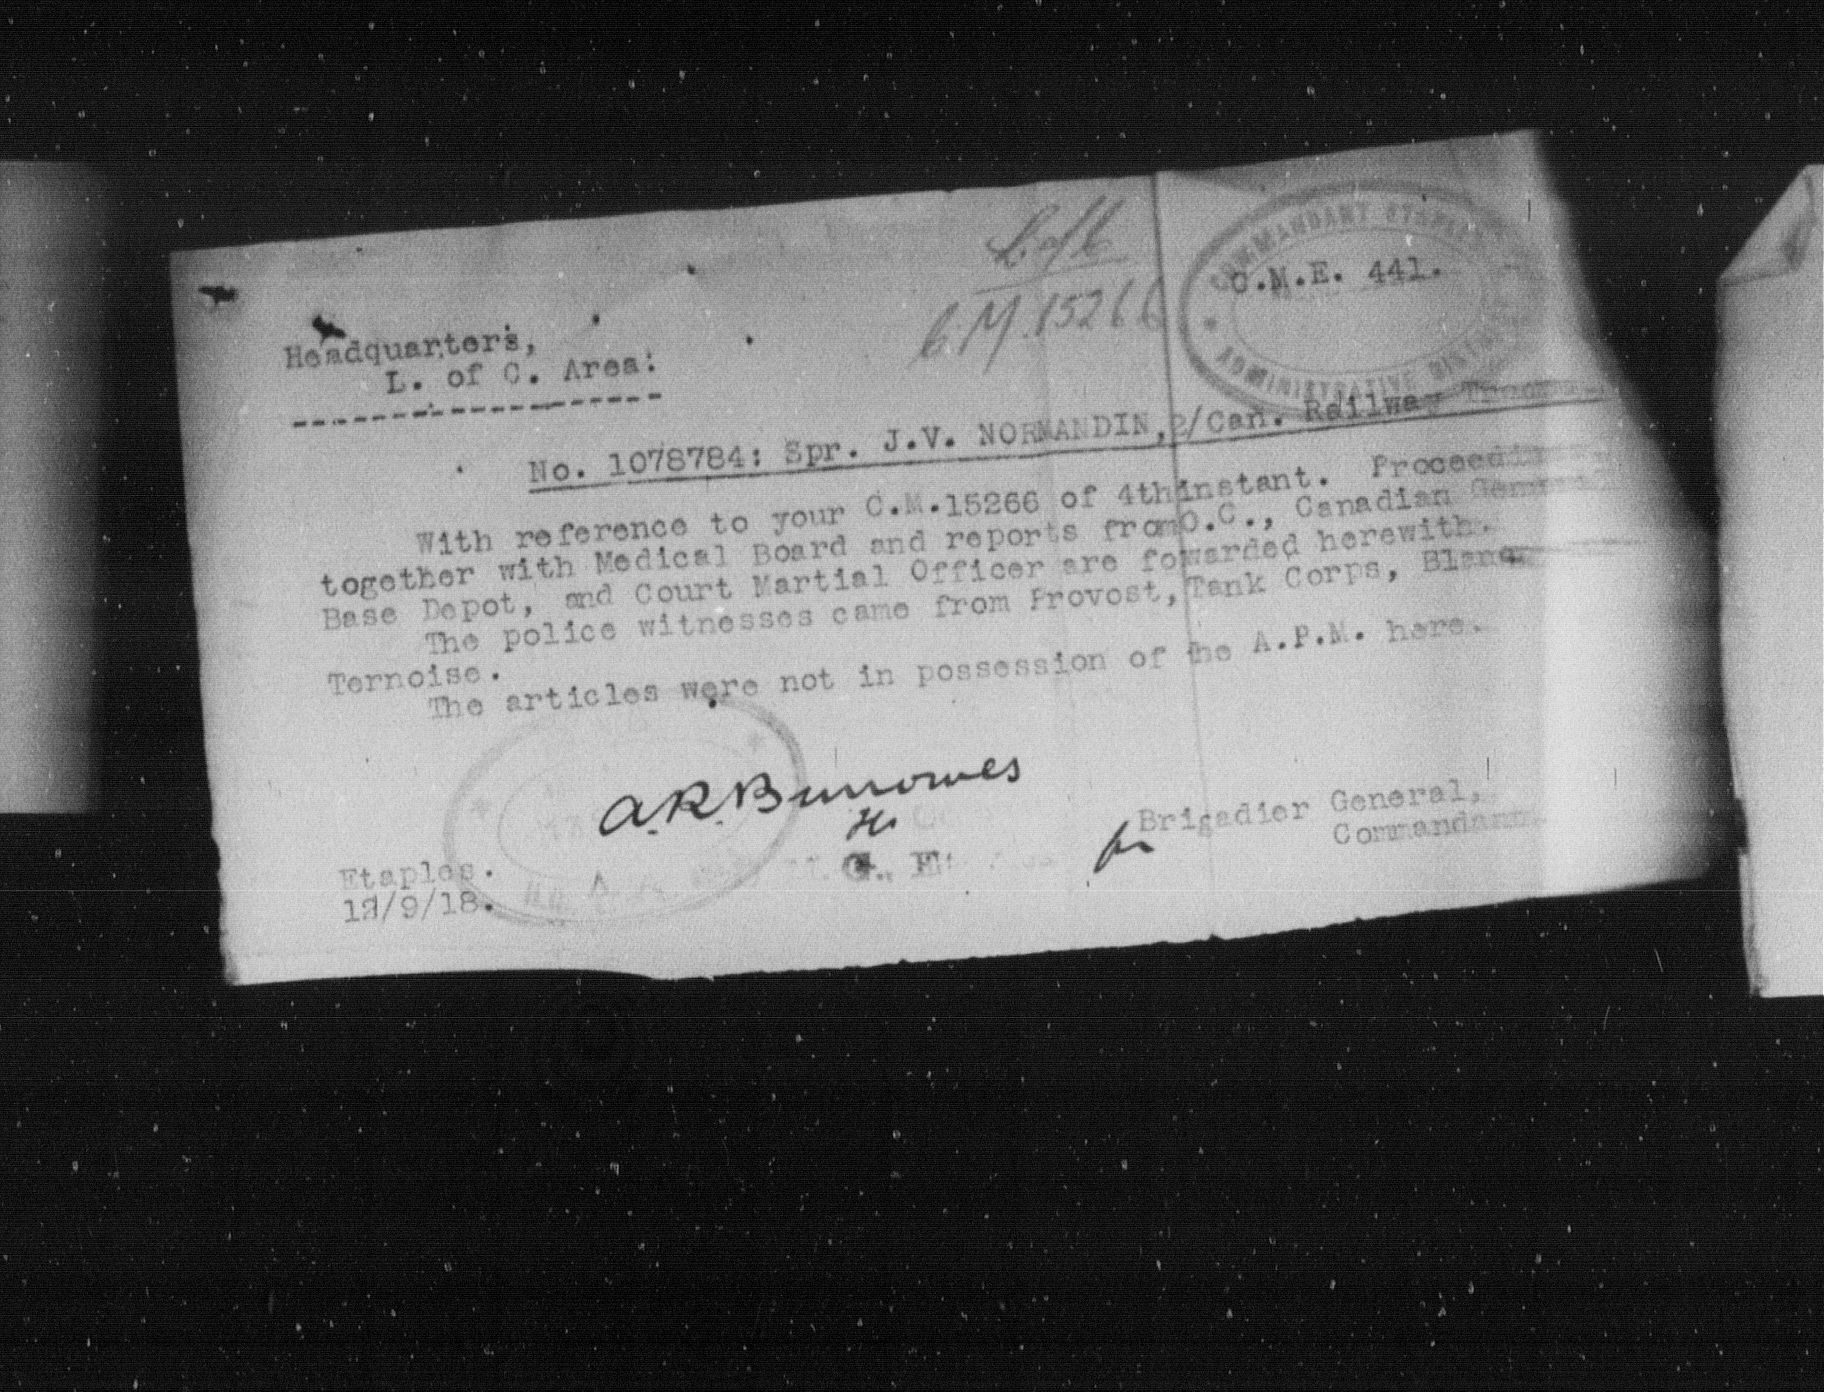 L of C
C.M. 15266
COMMANDANT ETAPLES
C.M.E. 441.
ADMINISTRATIVE
Headquarters,
L. of C. Area:
No. 1078784: Spr. J.V. NORMANDIN, 2/Can. Railway
With reference to your C.M.15266 of 4thinstant. Proceedings
together with Medical Board and reports fromO.C., Canadian General
Base Depot, and Court Martial Officer are fowarded herewith.
The police witnesses came from Provost, Tank Corps,
Ternoise.
The articles were not in possession of the A.P.M. here.
A.R. Burrowes
for Brigadier General,
Commandant
Etaples.
/9/18.